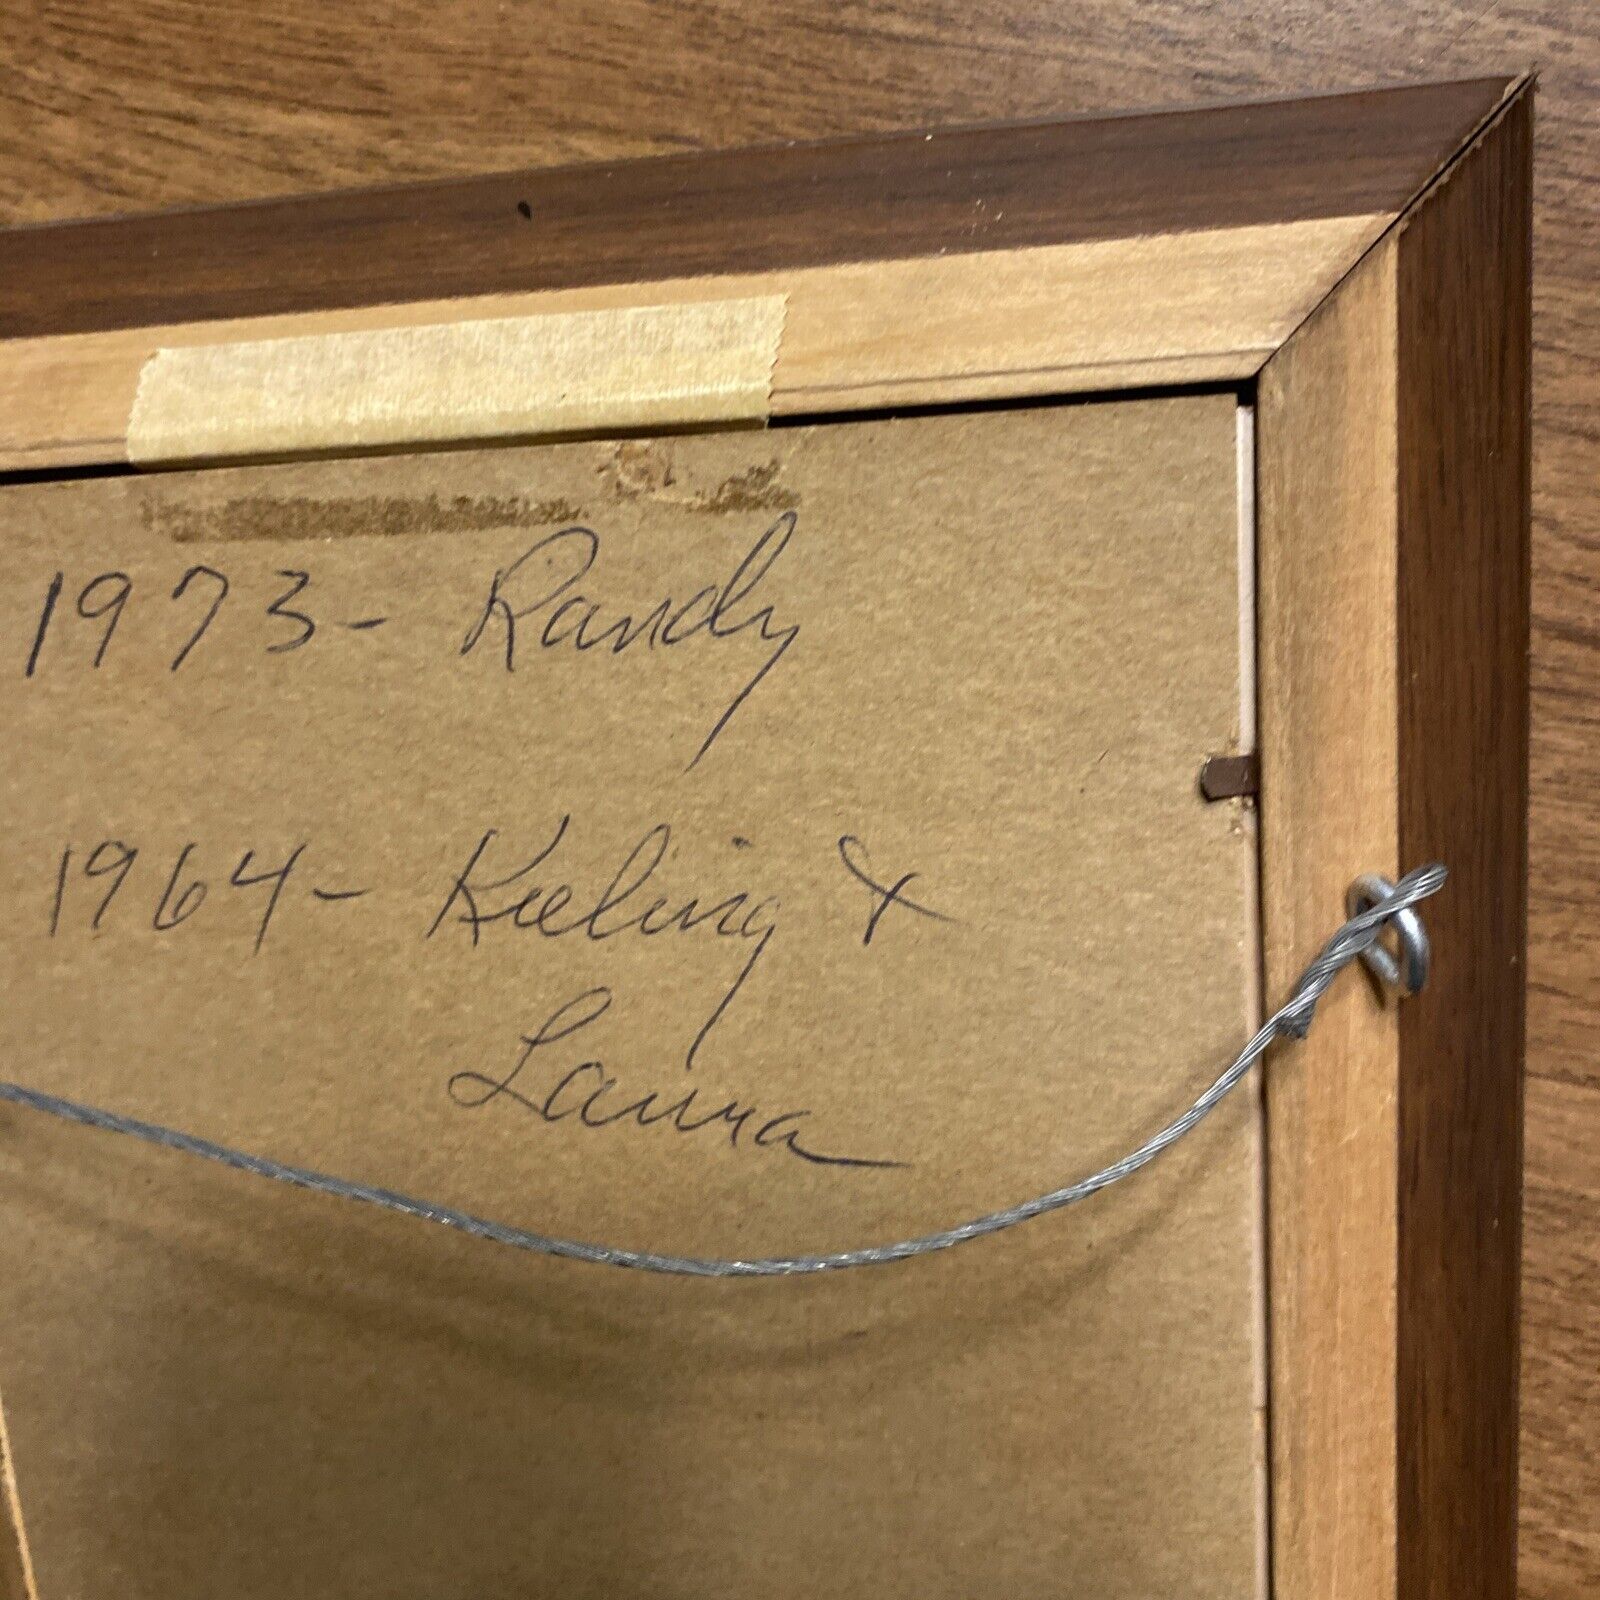 1973- Randy
1964- Keeling &
Laura